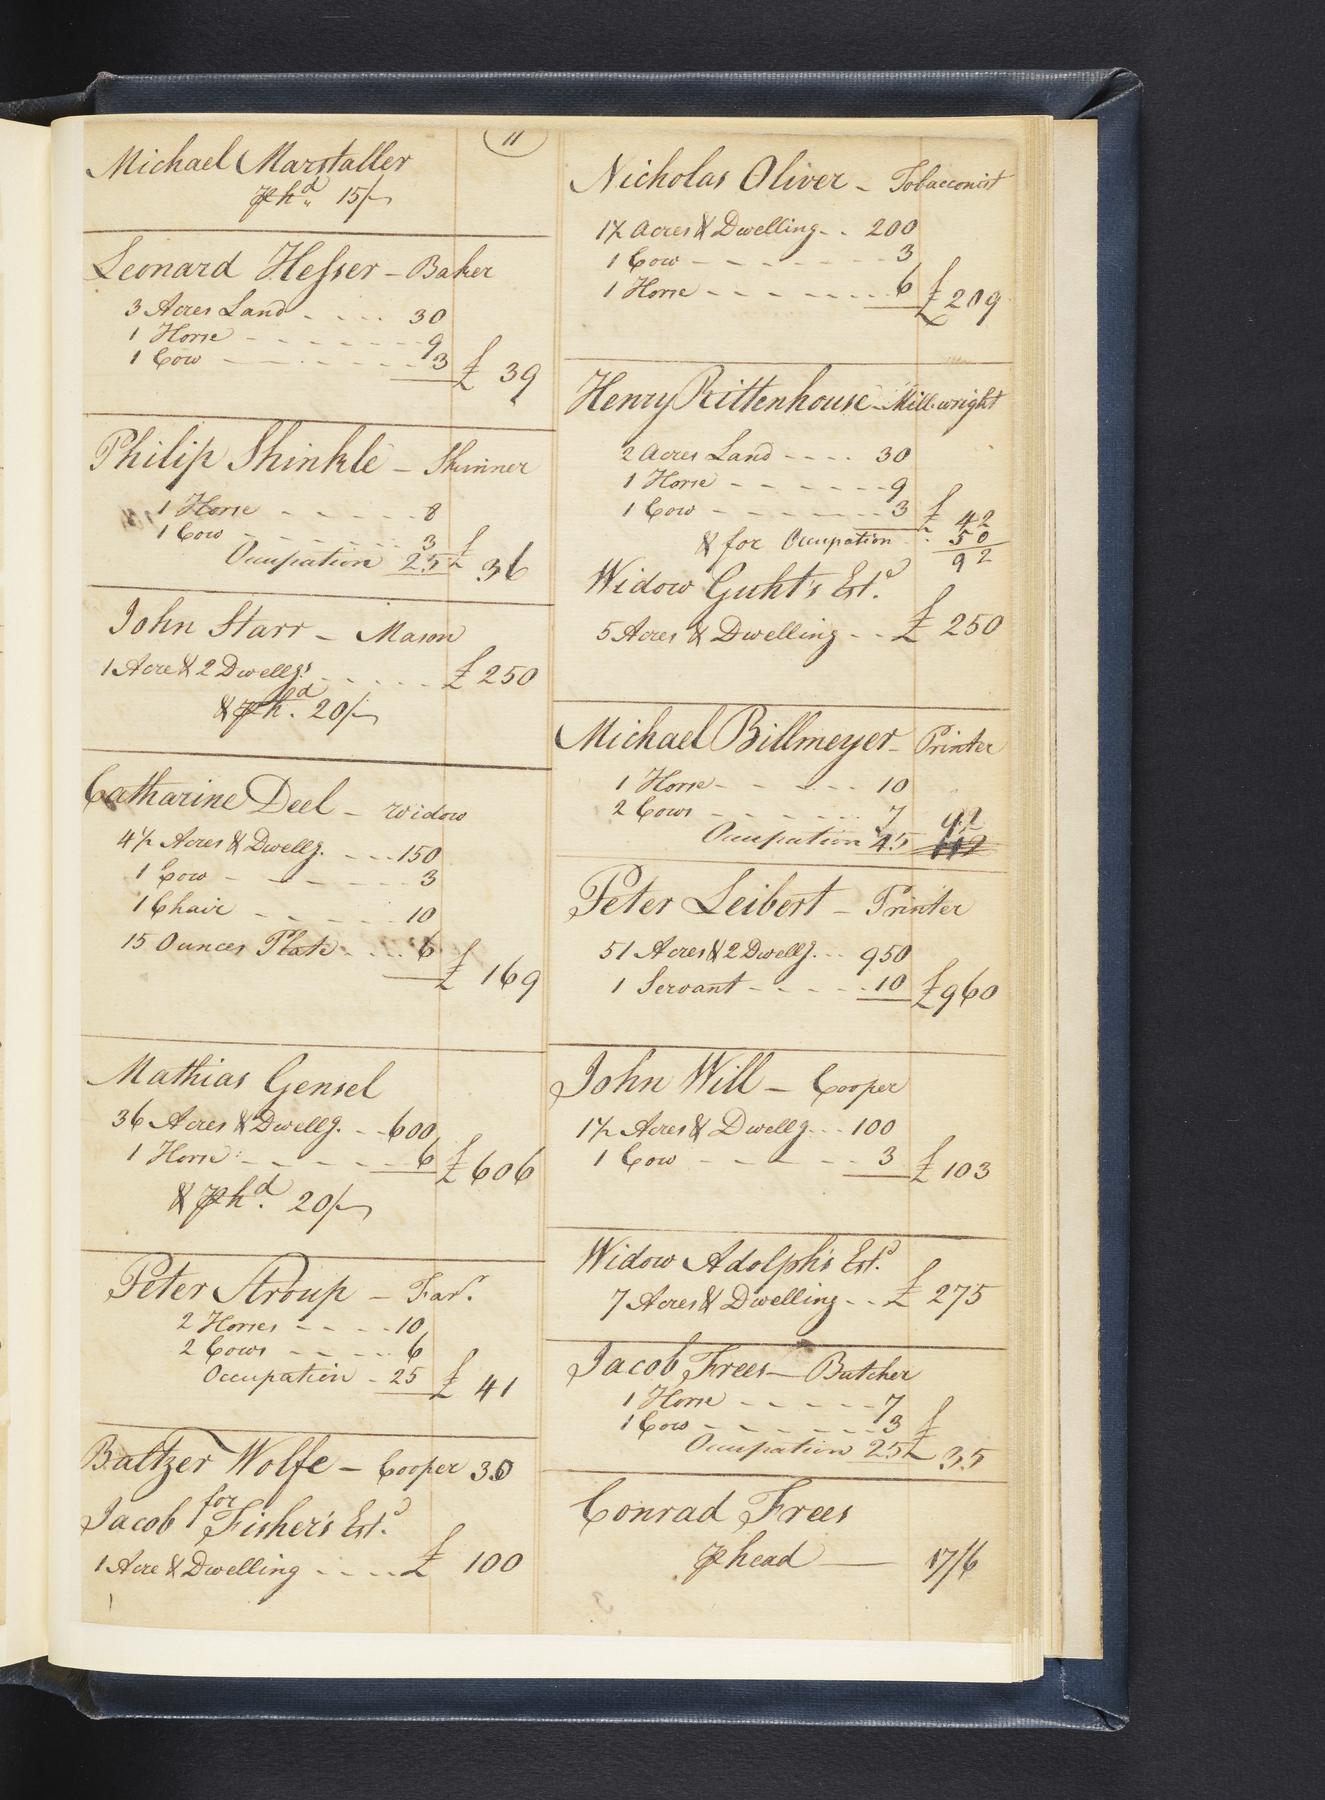 11
Michael Marstaller
⅌ hd 15/-
Leonard Hesser - Baker
3 Acres Land - - - - 30
1 Horse - - - - - - - 9
1 Cow - - - - - - - 3 £ 39
Philip Shinkle - Skinner
1 Horse - - - - - - 8
1 Cow - - - - - - 3
Occupation 25 £ 36
John Starr - Mason
1 Acre & 2 Dwellgs - - - - - £ 250
& ⅌ hd. 20/-
Catharine Deel - Widow
4½ Acres & Dwellg. - - - 150
1 Cow - - - - - 3
1 Chair - - - - - - 10
15 Ounces Plate - - - - 6 £ 169
Mathias Gensel
36 Acres & Dwellg. - - 600
1 Horse - - - - - - 6 £ 606
& ⅌ hd. 20/-
Peter Stroup - Far.
2 Horses - - - - 10
2 Cows - - - - - 6
Occupation - 25 £ 41
Baltzer Wolfe - Cooper 30
for
Jacob Fisher's Estd.
1 Acre & Dwelling - - - - £ 100
Nicholas Oliver - Tobacconist
1½ Acres & Dwelling - - 200
1 Cow - - - - - - - - 3
1 Horse - - - - - - - 6 £ 209
Henry Rittenhouse - Mill-wright
2 Acres Land - - - - 30
1 Horse - - - - - - - 9
1 Cow - - - - - - - 3 £ 42
& for Occupation - 50
92
Widow Guht's Estd.
5 Acres & Dwelling - - £ 250
Michael Billmeyer - Printer
1 Horse - - - - - 10
2 Cows - - - - - - 7 42
Occupation 45
Peter Leibert - Printer
51 Acres & 2 Dwellg. - - 950
1 Servant - - - - - 10 £ 960
John Will - Cooper
1½ Acres & Dwellg - - - 100
1 Cow - - - - - - 3 £ 103
Widow Adolph's Estd.
7 Acres & Dwelling - - £ 275
Jacob Frees - Butcher
1 Horse - - - - - - 7
1 Cow - - - - - - - 3
Occupation 25 £ 35
Conrad Frees
⅌ head — 17/6